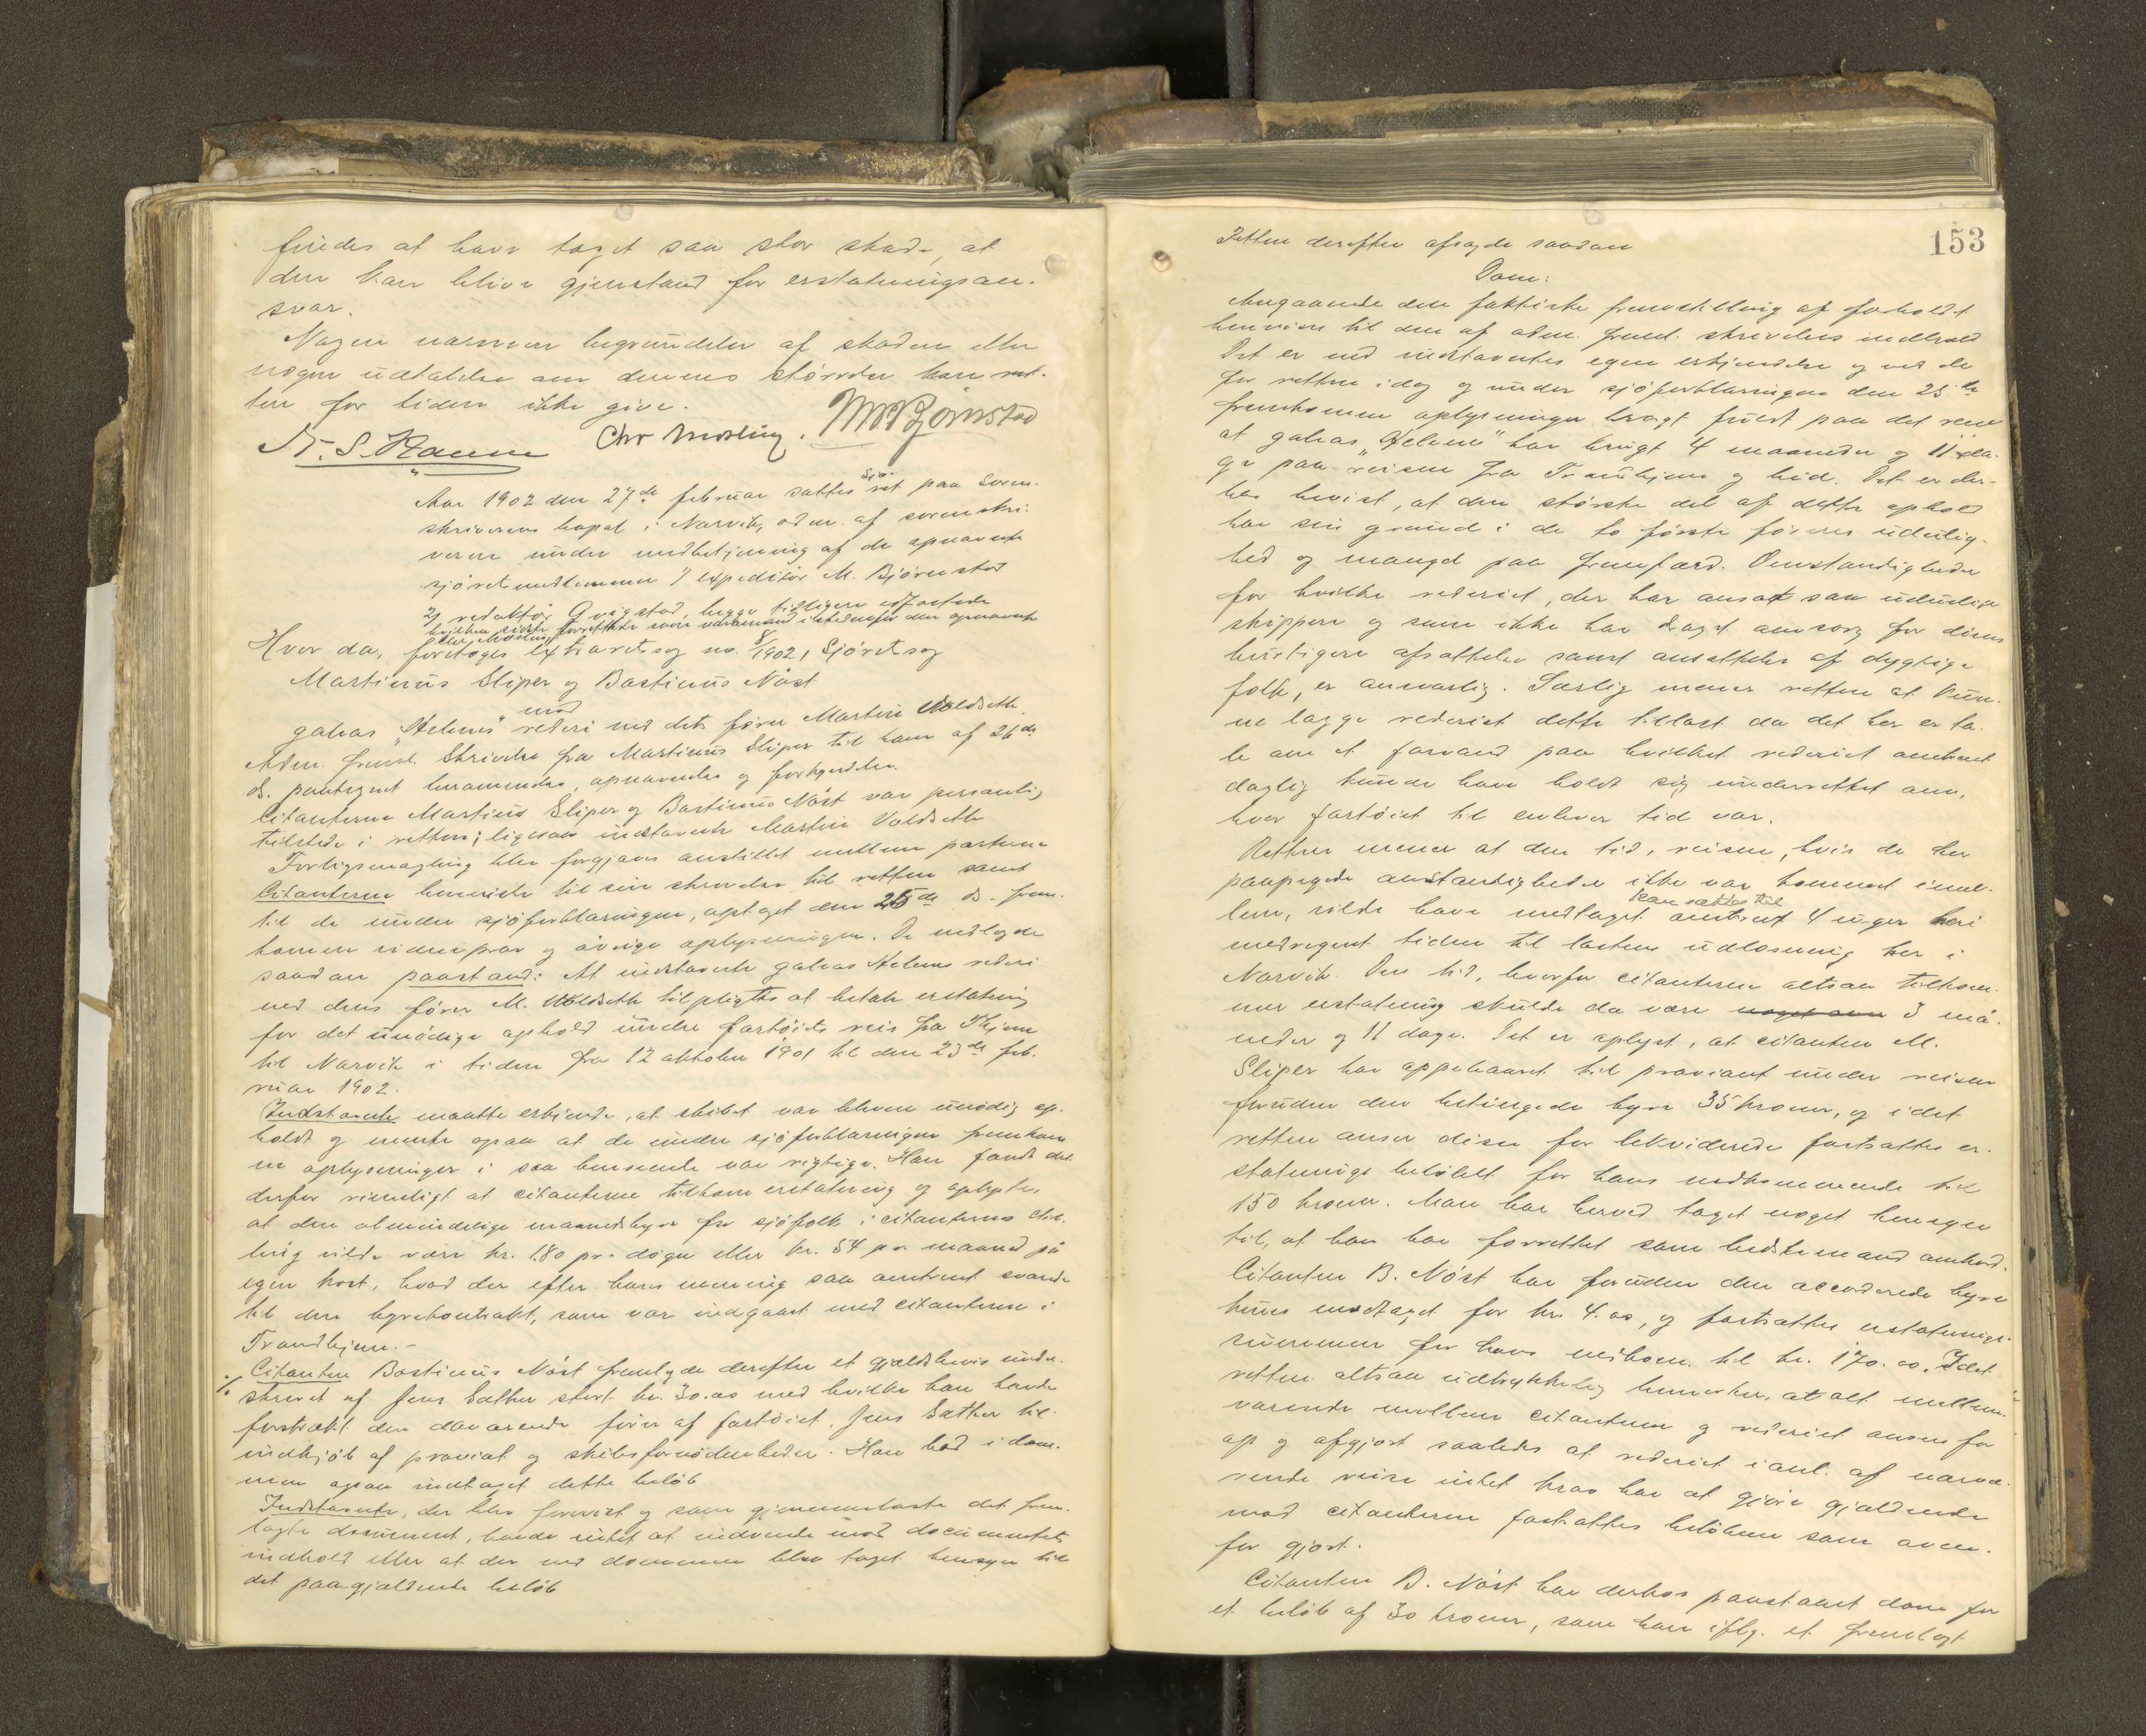 findes at have taget saa stor skade, at
den kan blive gjenstand for erstatningsan-
svar.
Nogen nærmere begrundelse af skaden eller
nogen udtalelse om dennes størrelse kan ret-
ten for tiden ikke give.
Chr Mosling. M Bjørnstad
Aar 1902 den 27de februar sattes sjöret paa soren-
skriverens kapel i Narvik, adm. af sorenskri-
veren under medbetjening af de opnævnte
sjöretsmedlemmer 1) expeditör M. Björnstad
2) redaktör Qvigstad, begge tidligere edfæstede
hvilken sidste forrettede som varamand istedenfor den opnævnte
Chr. Mosling
Hvor da, foretoges extraretssag no. 8/1902, Sjöretssag
Martinus Sliper og Bastinus Nöst
mod
galeas "Helene" rederi ved dets förer Martin Voldseth.
Adm. freml. Skrivelse fra Martinus Sliper til ham af 26de
ds. paategnet berammelse, opnævnelse og forkyndelse.
Citanterne Martinus Sliper og Bastinus Nöst var personlig
tilstede i retten; ligesaa indstævnte Martin Voldseth
Forligsmægling blev forgjæves anstillet mellem parterne
Citanterne henviste til sin skrivelse til retten samt
til de under sjöforklaringen, optaget den 25de ds. frem-
komne vidneprov og övrige oplysninger. De nedlagde
saadan paastand: At indstævnte galeas Helenes rederi
ved dens förer M. Voldseth tilpligtes at betale erstatning
for det unödige ophold under fartöiets reise fra Thjem
til Narvik i tiden fra 12 oktober 1901 til den 23de feb-
ruar 1902.
Indstævnte maatte erkjende, at skibet var bleven unödig op-
holdt og mente ogsaa at de under sjöforklaringen fremkom-
ne oplysninger i saa henseende var rigtige. Han fandt det
derfor rimeligt at citanterne tilkom erstatning og oplyste,
at den almindelige maanedshyre for sjöfolk i citanternes stil-
ling vilde være kr. 1.80 pr. dögn eller kr. 54 pr. maaned på
egen kost, hvad der efter hans mening saa omtrent svarede
til den hyrekontrakt, som var indgaaet med citanterne i
Trondhjem.-
Citanten Bastinus Nöst fremlagde derefter et gjældsbevis under-
skrevet af Jens Sæther stort kr. 30.00 med hvilke han havde
forstrakt den daværende förer af fartöiet, Jens Sæther til
indkjöb af proviant og skibsfornödenheder. Han bad i dom-
men ogsaa indtaget dette belöb
Indstævnte, der blev forevist og som gjennemlæste det frem-
lagte document, havde intet at indvende mod documentets
indhold eller at der ved dommen blev taget hensyn til
det paagjældende belöb
153
Retten derefter afsagde saadan
Dom:
Angaaende den faktiske fremstilling af forholdet
henvises til den af adm. freml. skrivelses indhold
Det er ved indstævntes egen erkjendelse og ved de
for retten idag og under sjöforklaringen den 25de
fremkomne oplysninger bragt fuldt paa det rene
at galeas "Helene" har brugt 4 maaneder og 11 da-
ge paa reisen fra Trondhjem og hid. Det er der-
hos bevist, at den störste del af dette ophold
har sin grund i de to förste föreres udulig-
hed og mangel paa fremfærd. Omstændigheder
for hvilke rederiet, der har ansat saa udulige
skippere og som ikke har draget omsorg for disses
hurtigere afsættelse samt ansættelse af dygtige
folk, er ansvarlig. Særlig mener retten at kun-
ne lægge rederiet dette tillast da det her er ta-
le om et farvand paa hvilket rederiet omtrent
daglig kunde have holdt sig underrettet om,
hvor fartöiet til enhver tid var.
Retten mener at den tid, reisen, hvis de her
paapegede omstændigheder ikke var kommet imel-
kan sættes til
lem, vilde have medtaget omtrent 4 uger heri
medregnet tiden til lastens udlosning her i
Narvik. Den tid, hvorfor citanterne altsaa tilkom-
mer erstatning skulde da være noget over 3 må-
neder og 11 dage. Det er oplyst, at citanten M.
Sliper har oppebaaret til proviant under reisen
foruden den betingede hyre 35 kroner, og idet
retten anser disse for likviderede fastsættes er-
statnings belöbet for hans vedkommende til
150 kroner. Man har herved taget noget hensyn
til, at han har forrettet som bedstemand ombord.
Citanten B. Nöst har foruden den accorderede hyre
kuns modtaget for kr. 4.00, og fastsættes erstatnings-
summen for hans vedkom. til kr. 170.00. Idet
retten altsaa udtrykkelig bemærker, at alt mellem-
værende mellem citanterne og rederiet ansees for
op og afgjort saaledes at rederiet i anl. af nærvæ-
rende reise intet krav har at gjöre gjældende
mod citanterne fastsættes belöbene som oven-
for gjort.
Citanten B. Nöst har derhos paastaaet dom for
et belöb af 30 kroner, som han iflg. et fremlagt